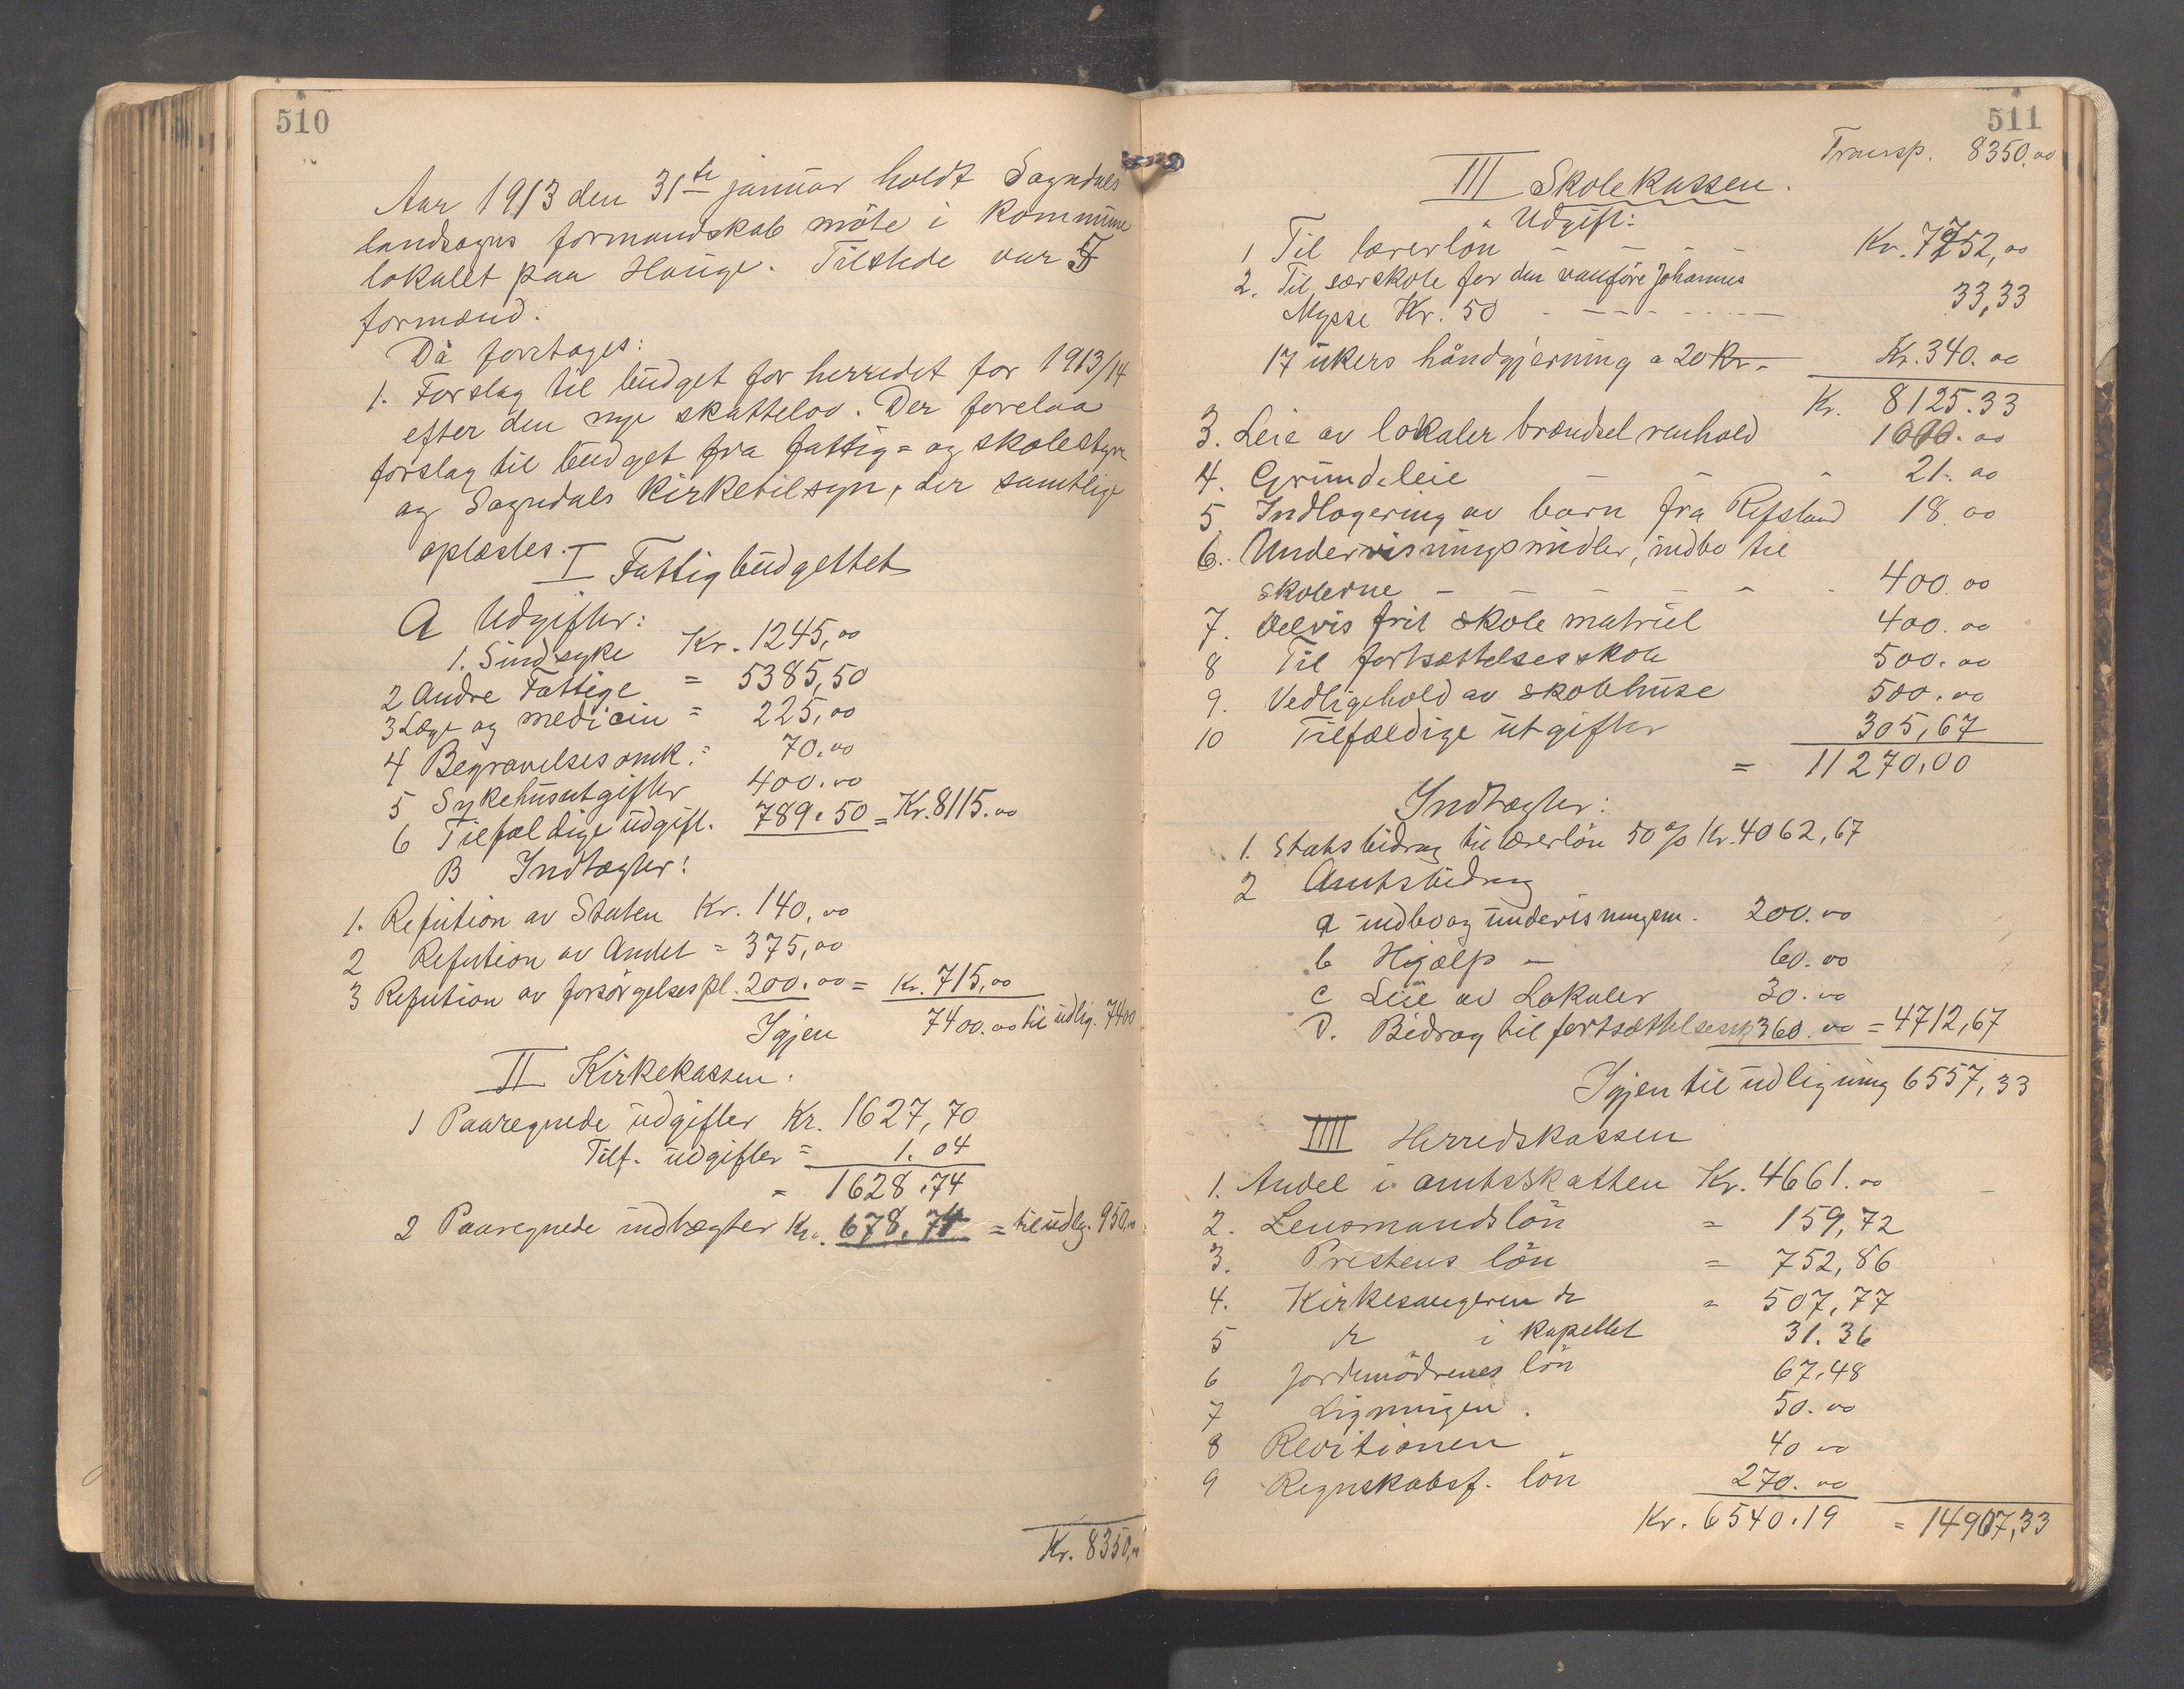 510
Aar 1913 den 31te januar holdt Sogndals
landsogns formandskab möte i Kommune
lokalet paa Hauge. Tilstede var
formænd.
Då foretoges:
1. Forslag til büdget for herredet for 1913/14
efter den nye skattelov. Der forelaa
forslag til büdget fra fattig= og skolestyre
og Sogndals Kirketilsyn, der samtlige
oplæstes.
I Fattigbüdgettet
A Udgifter:
1. Sindsyke Kr. 1245,00
2 Andre Fattige = 5385,50
3 Læge og medicin = 225,00
4 Begravelsesomk. = 70.00
5 Sykehusutgifter 400.00
6 Tilfældige üdgift. 789.50 = Kr. 8115.00
B Indtægter:
1. Refution av Staten Kr. 140,00
2 Refution av Amtet = 375,00
3 Refution av forsörgelsespl. 200.00 = Kr. 715,00
Igjen 7400.00 til üdlig. 7400
II Kirkekassen.
1 Paaregnede üdgifter Kr. 1627,70
Tilf. üdgifter = 1.04
= 1628.74
2 Paaregnede indtægter Kr. 678.74 = til üdlg. 950,00
Kr. 8350,00
511
Transp. 8350.00
III Skolekassen.
Udgift:
1 Til lærerlön - - - - Kr. 7752,00
2. Til særskole for den vanföre Johannes
Mysse Kr. 50 - - - - - - 33,33
17 ükers håndgjerning a 20 Kr. - Kr. 340.00
Kr. 8125.33
3. Leie av lokaler brændsel renhold 1000.00
4. Gründleie - - - 21.00
5. Indlogering av barn fra Refsland 18.00
6. Undervisningsmidler, indbo til
skolerne - - - - - 400.00
7. Delvis frit skole matriel 400.00
8 Til fortsættelsesskole 500.00
9. Vedligehold av skolehüse 500.00
10 Tilfældige ütgifter 305,67
= 11270,00
Indtægter:
1. Statsbidrag til lærerlön 50 % Kr. 4062,67
2 Amtsbidrag
a indbo og ündervisningsm. 200.00
b Hjælp - 60.00
c Leie av Lokaler 30.00
D. Bidrag til fortsættelsessk 360.00 = 4712,67
Igjen til üdligning 6557,33
IIII Herredskassen
1. Andel i amtsskatten Kr. 4661.00
2. Lensmandslön = 159,72
3. Prestens lön = 752,86
4. Kirkesangeren dr = 507,77
5 dr i kapellet 31.36
6 Jordemödrenes lön 67.48
7 Ligningen. 50.00
8 Revitionen 40.00
9 Regnskabsf. lön 270.00
Kr. 6540.19 = 14907,33